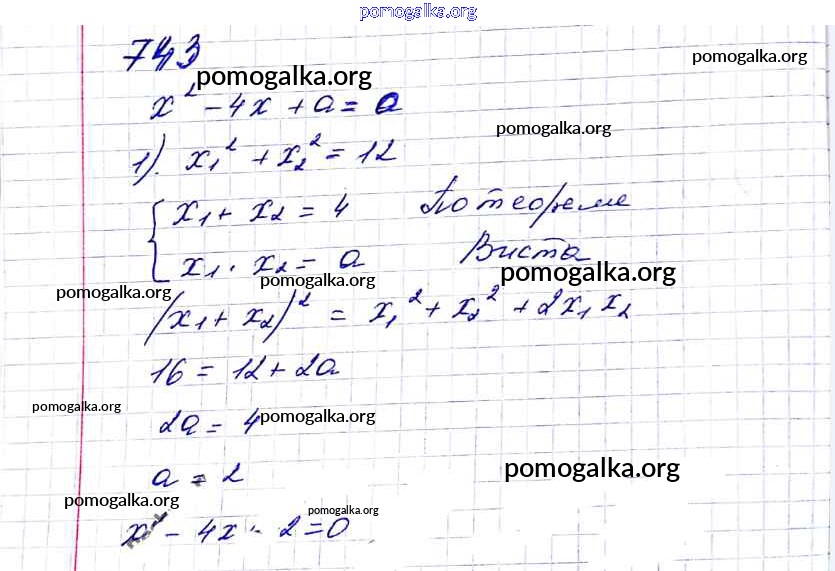 pomogalka.org
743
pomogalka.org
pomogalka.org
x² - 4x + a = 0
pomogalka.org
1). x₁² + x₂² = 12
x₁ + x₂ = 4 По теореме
x₁ · x₂ = a Виета
pomogalka.org
pomogalka.org
(x₁ + x₂)² = x₁² + x₂² + 2x₁x₂
16 = 12 + 2a
pomogalka.org
2a = 4
pomogalka.org
a = 2
pomogalka.org
pomogalka.org
pomogalka.org
x² - 4x - 2 = 0